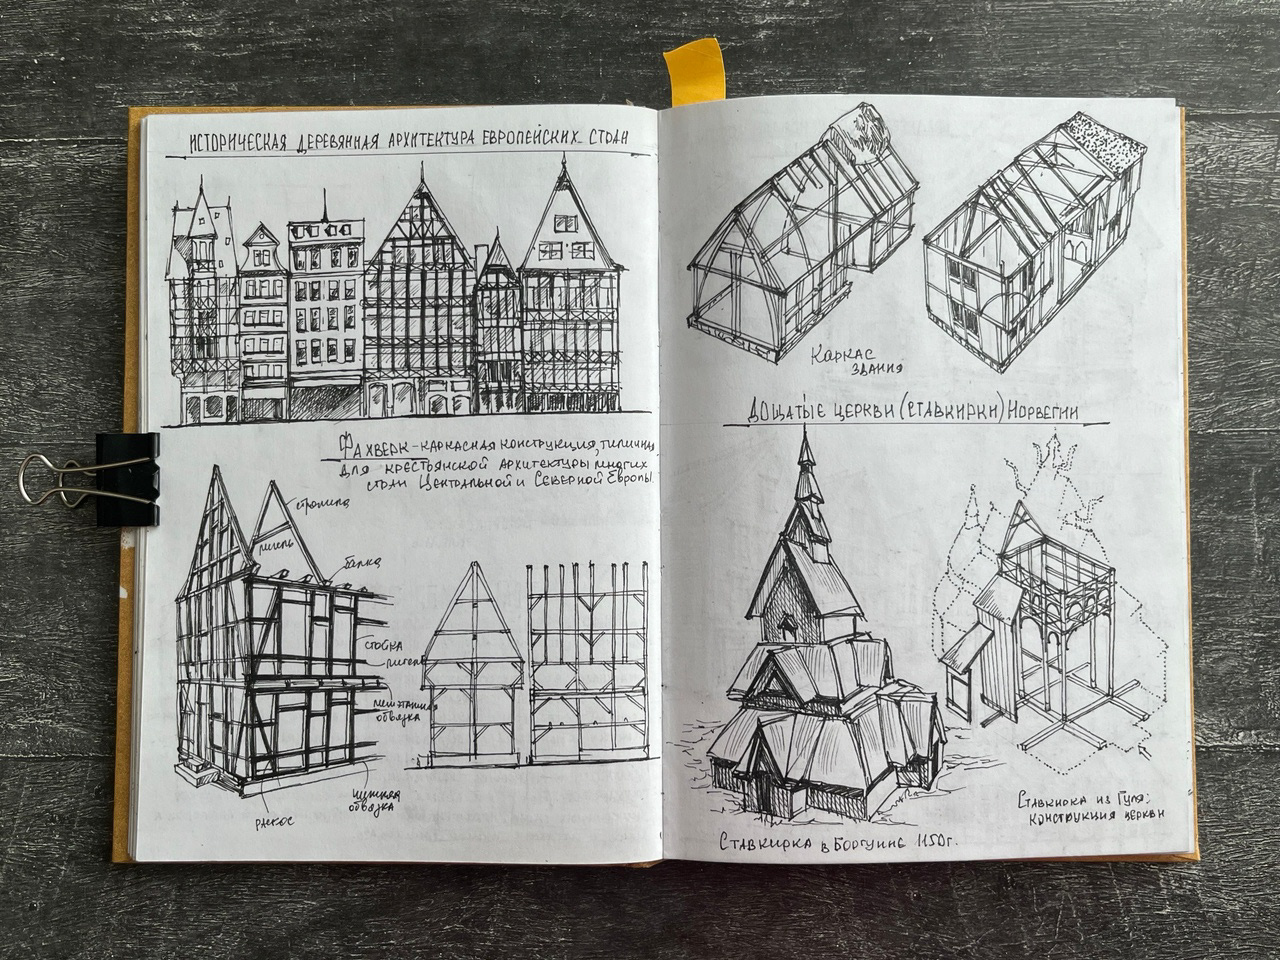 ИСТОРИЧЕСКАЯ ДЕРЕВЯННАЯ АРХИТЕКТУРА ЕВРОПЕЙСКИХ СТРАН
ФАХВЕРК - КАРКАСНАЯ КОНСТРУКЦИЯ, ТИПИЧНАЯ
ДЛЯ КРЕСТЬЯНСКОЙ АРХИТЕКТУРЫ МНОГИХ
СТРАН ЦЕНТРАЛЬНОЙ И СЕВЕРНОЙ ЕВРОПЫ.
стропила
ригель
балка
стойка
ригель
обвязка
нижняя
обвязка
раскос
КАРКАС
ЗДАНИЯ
ДОЩАТЫЕ ЦЕРКВИ (СТАВКИРКИ) НОРВЕГИИ
СТАВКИРКА В БОРГУННЕ 1150г.
СТАВКИРКА ИЗ ГУЛЯ:
КОНСТРУКЦИЯ ЦЕРКВИ